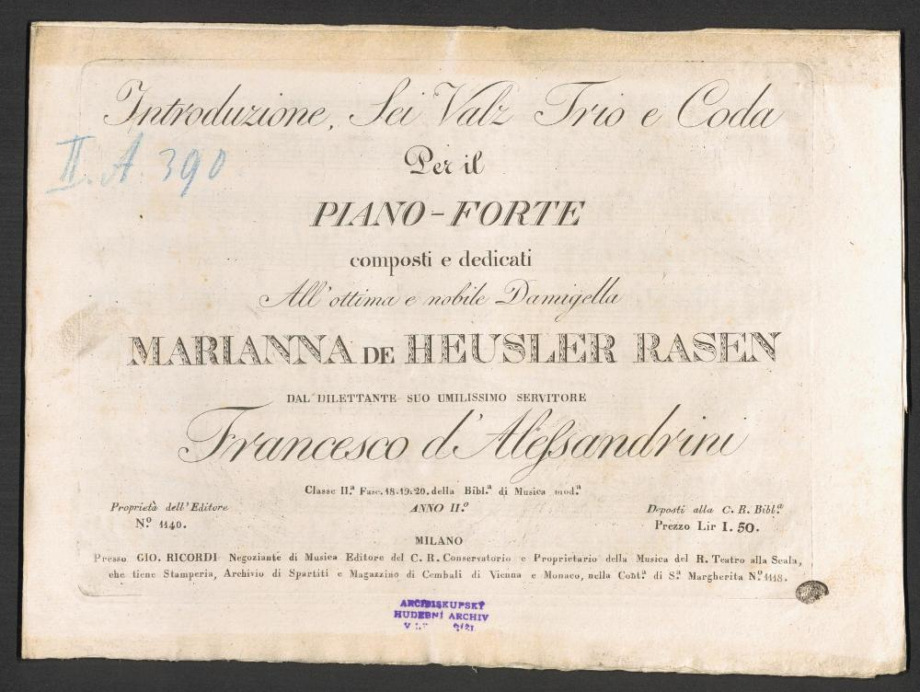 Introduzione, Sei Valz Trio e Coda
II. A. 390
Per il
PIANO-FORTE
composti e dedicati
All'ottima e nobile Damigella
MARIANNA DE HEUSLER RASEN
DAL DILETTANTE SUO UMILISSIMO SERVITORE
Francesco d'Alessandrini
Classe II.ª Fasc. 18-19-20. della Bibl.ª di Musica mod.ª
Proprietà dell'Editore
ANNO II.º
Deposti alla C. R. Bibl.ª
N.º 1140.
Prezzo Lir 1. 50.
MILANO
Presso GIO. RICORDI Negoziante di Musica Editore del C. R. Conservatorio e Proprietario della Musica del R. Teatro alla Scala,
che tiene Stamperia, Archivio di Spartiti e Magazzino di Cembali di Vienna e Monaco, nella Cont.ª di S.ª Margherita N.º 1118.
ARCIBISKUPSKÝ
HUDEBNÍ ARCHIV
V